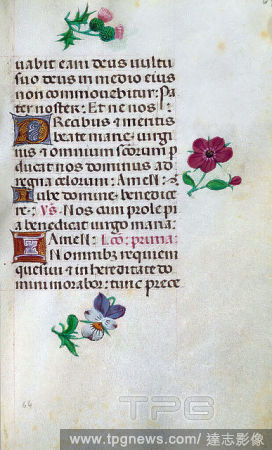 uabit eam deus uultu
suo deus in medio eius
non commouebitur: Pa
ter noster: Et ne nos:
Precibus et meritis
beate marie uirgi
nis et omnium scorum p
ducat nos dominus ad
regna celorum: Amen:
Iube domine benedice
re: Vs. Nos cum prole pia
benedicat uirgo maria:
Amen: Lco: prima:
In omnibus requiem
quesiui et in hereditate do
mini morabor: tunc prece
64
TPG
www.tpgnews.com/達志影像